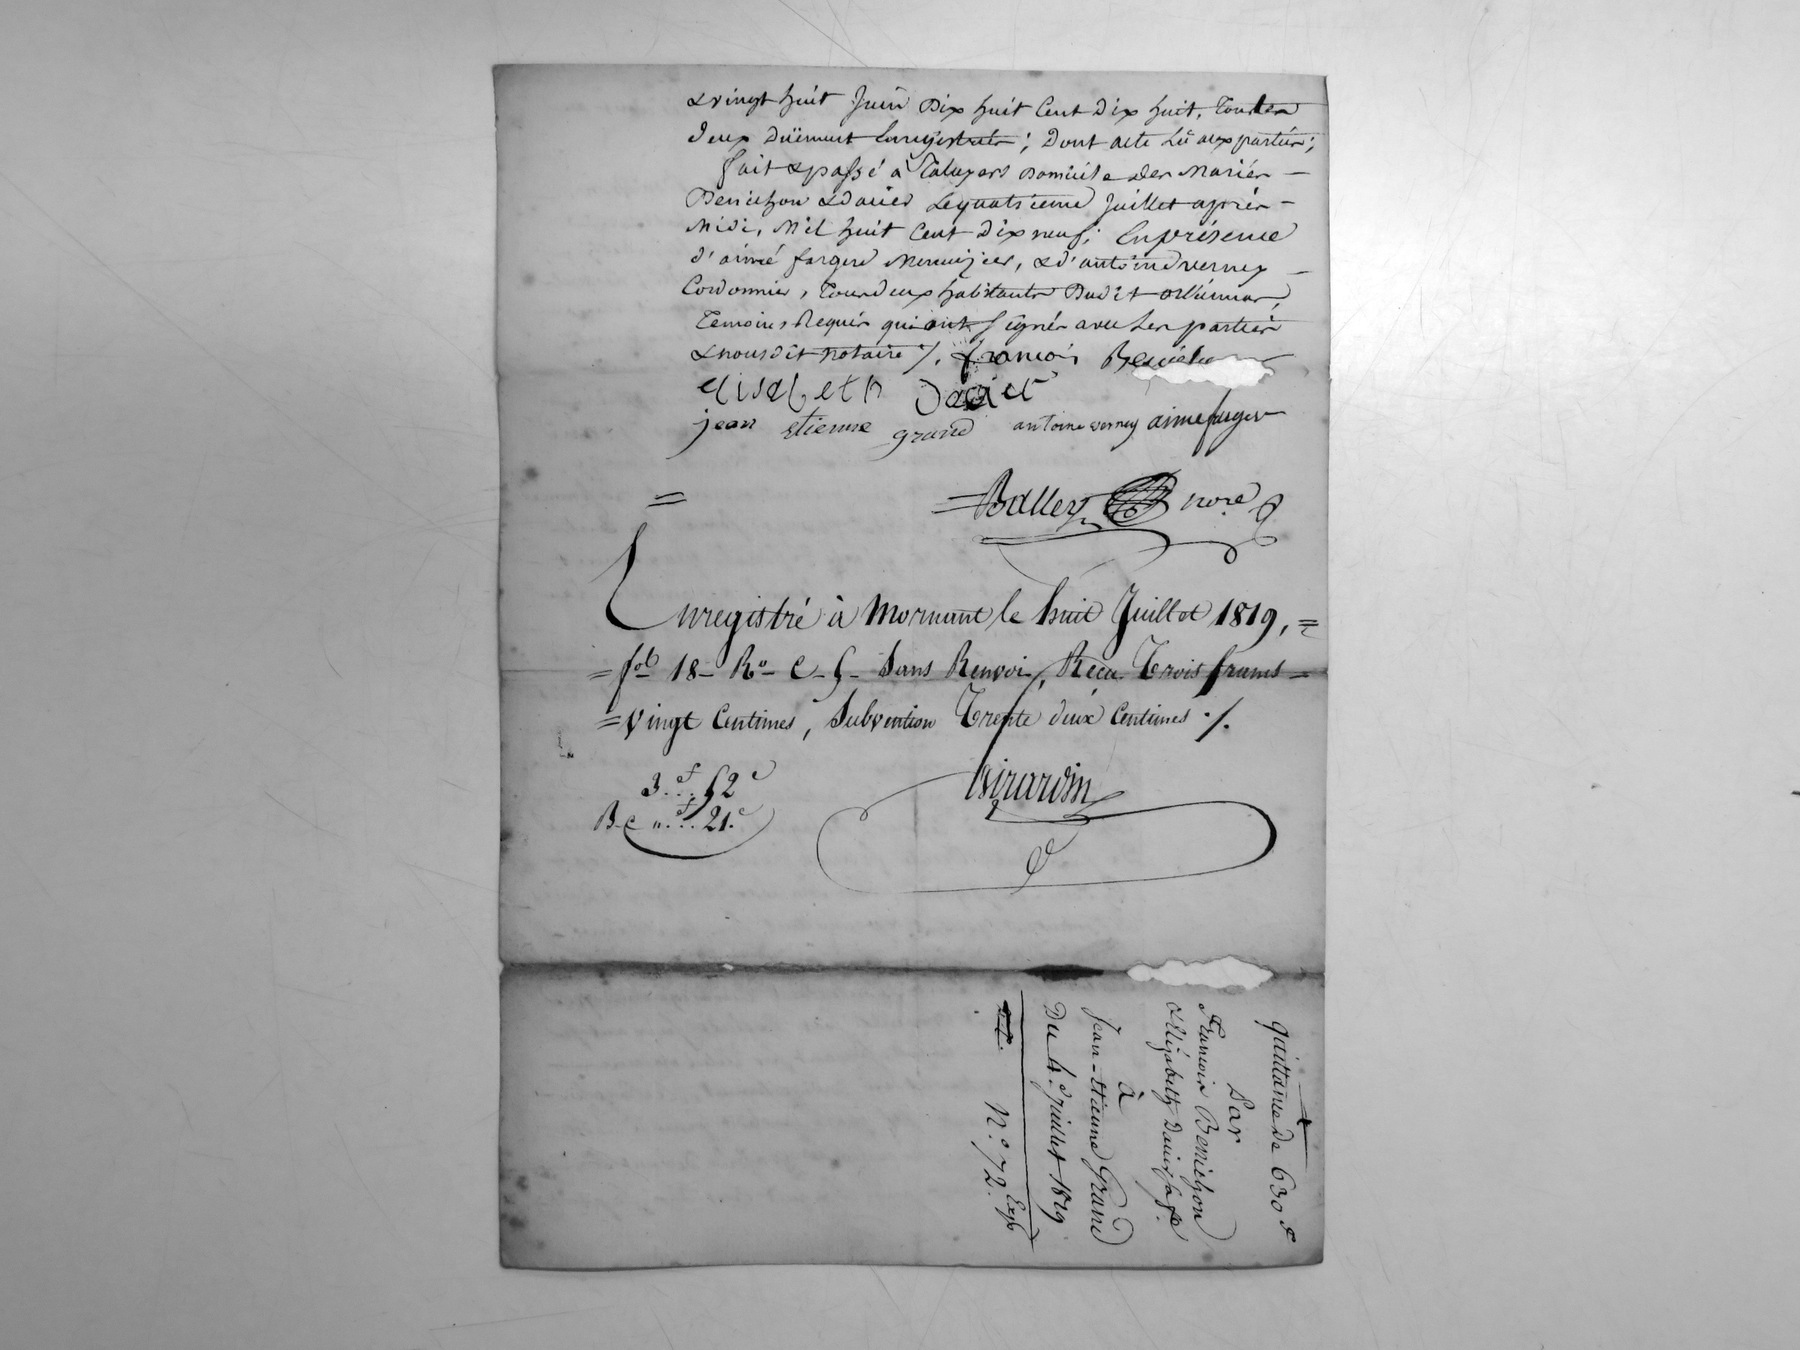 & vingt huit Juin Dix huit Cent Dix huit, Tous les
Deux Düement Enregistrés ; Dont acte Lû aux parties ;
fait & passé à Taluyers Domicile Des Mariés —
Benichon & Daviet Le quatrieme Juillet après —
Midi, Mil huit Cent Dix neuf ; En présence
d'aimé fargere Menuizier, & d'antoine verney —
Cordonnier, Tous deux habitants Dudit
Temoins Requis qui ont signés avec Les parties
& nous dit notaire ./. françois Benichon
Elisabeth Daviet
jean etienne grand antoine verney aime farger
= = Balley nore
Enregistré à Mornant le huit Juillet 1819, =
= fol 18 - Ro - C - 5 - Sans Renvoi, Recu Trois francs =
= vingt Centimes, Subvention Trente deux Centimes ./.
3.f.. 52 c
B.c ".f.. 21.c
Girardin
quittance de 630 f
Par
François Benichon
& Elizabeth Daviet sa fe.
à
Jean-Etienne Grand
Du 4.e Juillet 1819
N.o 72. Exp